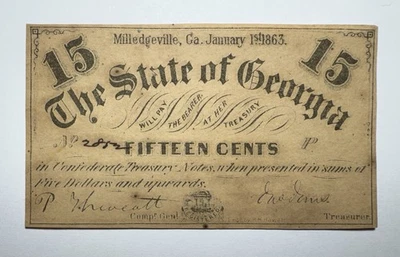 15 Milledgeville, Ga. January 1st 1863. 15
The State of Georgia
WILL PAY THE BEARER AT HER TREASURY
No 2852 FIFTEEN CENTS
in Confederate Treasury Notes, when presented in sums of
Five Dollars and upwards.
Compt Genl. Treasurer